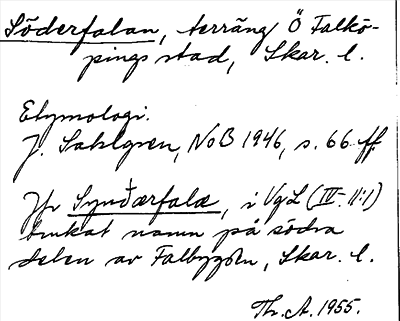 Söderfalan, terräng Ö Falkö-
pings stad, Skar. l.
Etymologi.
J. Sahlgren, NoB 1946, s. 66 ff.
Jfr Synðærfalæ, i VgL (IV-11:1)
brukat namn på södra
delen av Falbygden, Skar. l.
Th. A. 1955.